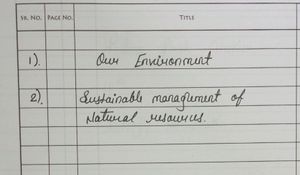 SR. NO. PAGE NO. TITLE
1). Our Environment
2). Sustainable management of
Natural resources.